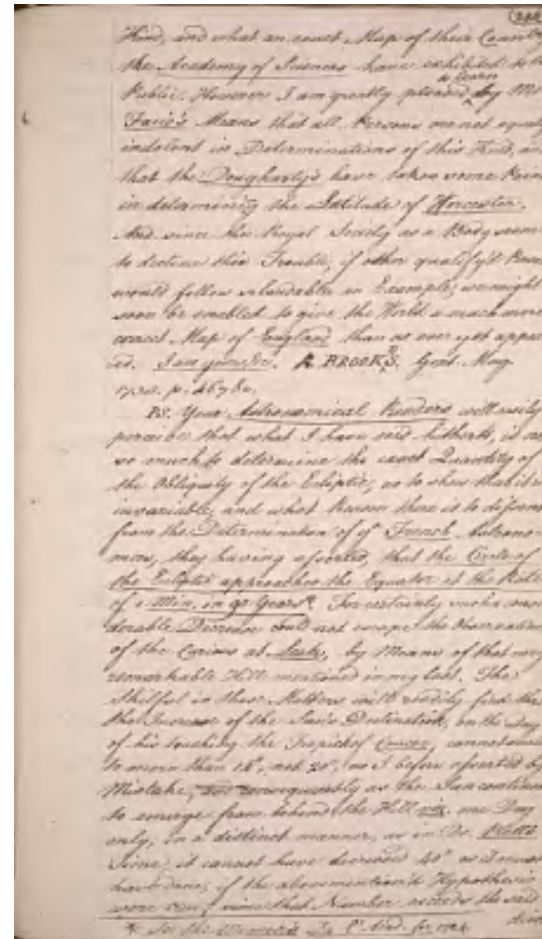 Kind, and what an exact Map of their Country
the Academy of Sciences have exhibited to the
to learn
Public. However I am greatly pleased by Mr
Facio's Means that all Persons are not equally
indolent in Determinations of this Kind, and
that the Dougharty's have taken some Pains
in determining the Latitude of Worcester.
And since the Royal Society as a Body seem
to decline this Trouble, if other qualify'd
would follow so laudable an Example, we might
soon be enabled to give the World a much more
exact Map of England than as ever yet appear
ed. I am yours, &c. R. BROOKS. Gent. Mag.
p. 467 &c.
PS. Your Astronomical Readers will easily
perceive that what I have said hitherto, is not
so much to determine the exact Quantity of
the Obliquity of the Ecliptic, as to show that it is
invariable, and what Reason there is to dissent
from the Determination of ye French Astrono-
mers, they having asserted, that the Circle of
the Ecliptic approaches the Equator at the Rate
of 1 Min. in 90 Years*. For certainly such a consi-
derable Decrease could not escape the Observation
of the Curious at Leek, by Means of that very
remarkable Hill mentioned in my last. The
Skilful in these Matters will readily find that
the Increase of the Sun's Declination, on the Day
of his touching the Tropick of Cancer, cannot amount
to more than not 20", as I before asserted by
Mistake, and consequently as the Sun continues
to emerge from behind the Hill viz. one Day
only, in a distinct manner, as in Dr. Plott's
Time, it cannot have decreased 40" as it must
have done, if the abovemention'd Hypothesis
were true, since that Number exceeds the said
* See the Memoirs for 1724